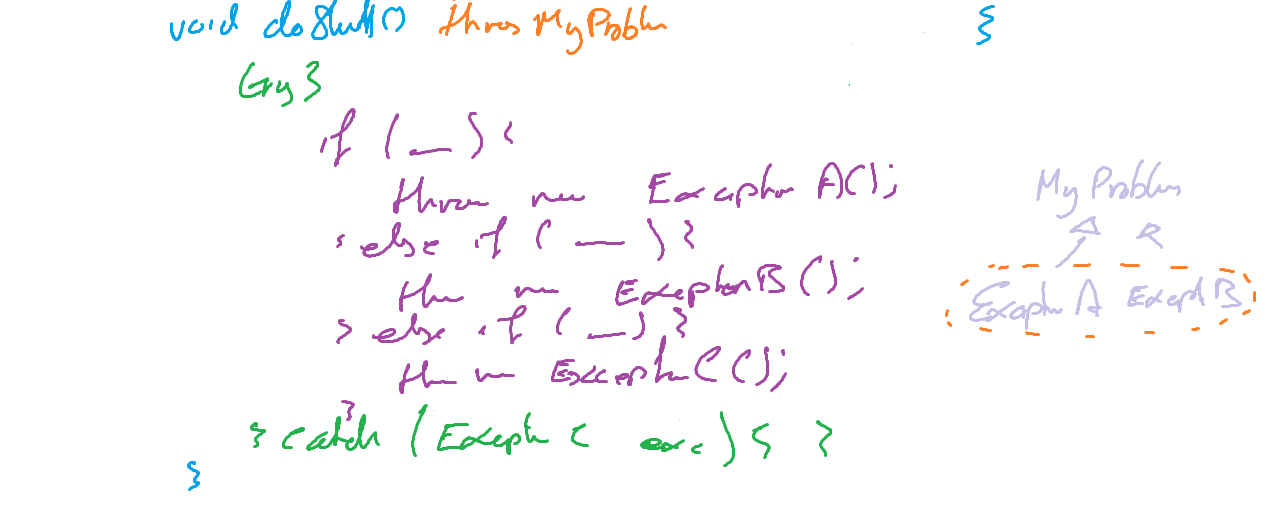 void doStuff() throws MyProblem {
try {
if ( __ ) {
throw new ExceptionA();
} else if ( __ ) {
throw new ExceptionB();
} else if ( __ ) {
throw new ExceptionC();
}
} catch (ExceptionC exc) { }
}
MyProblem
ExceptionA ExceptionB